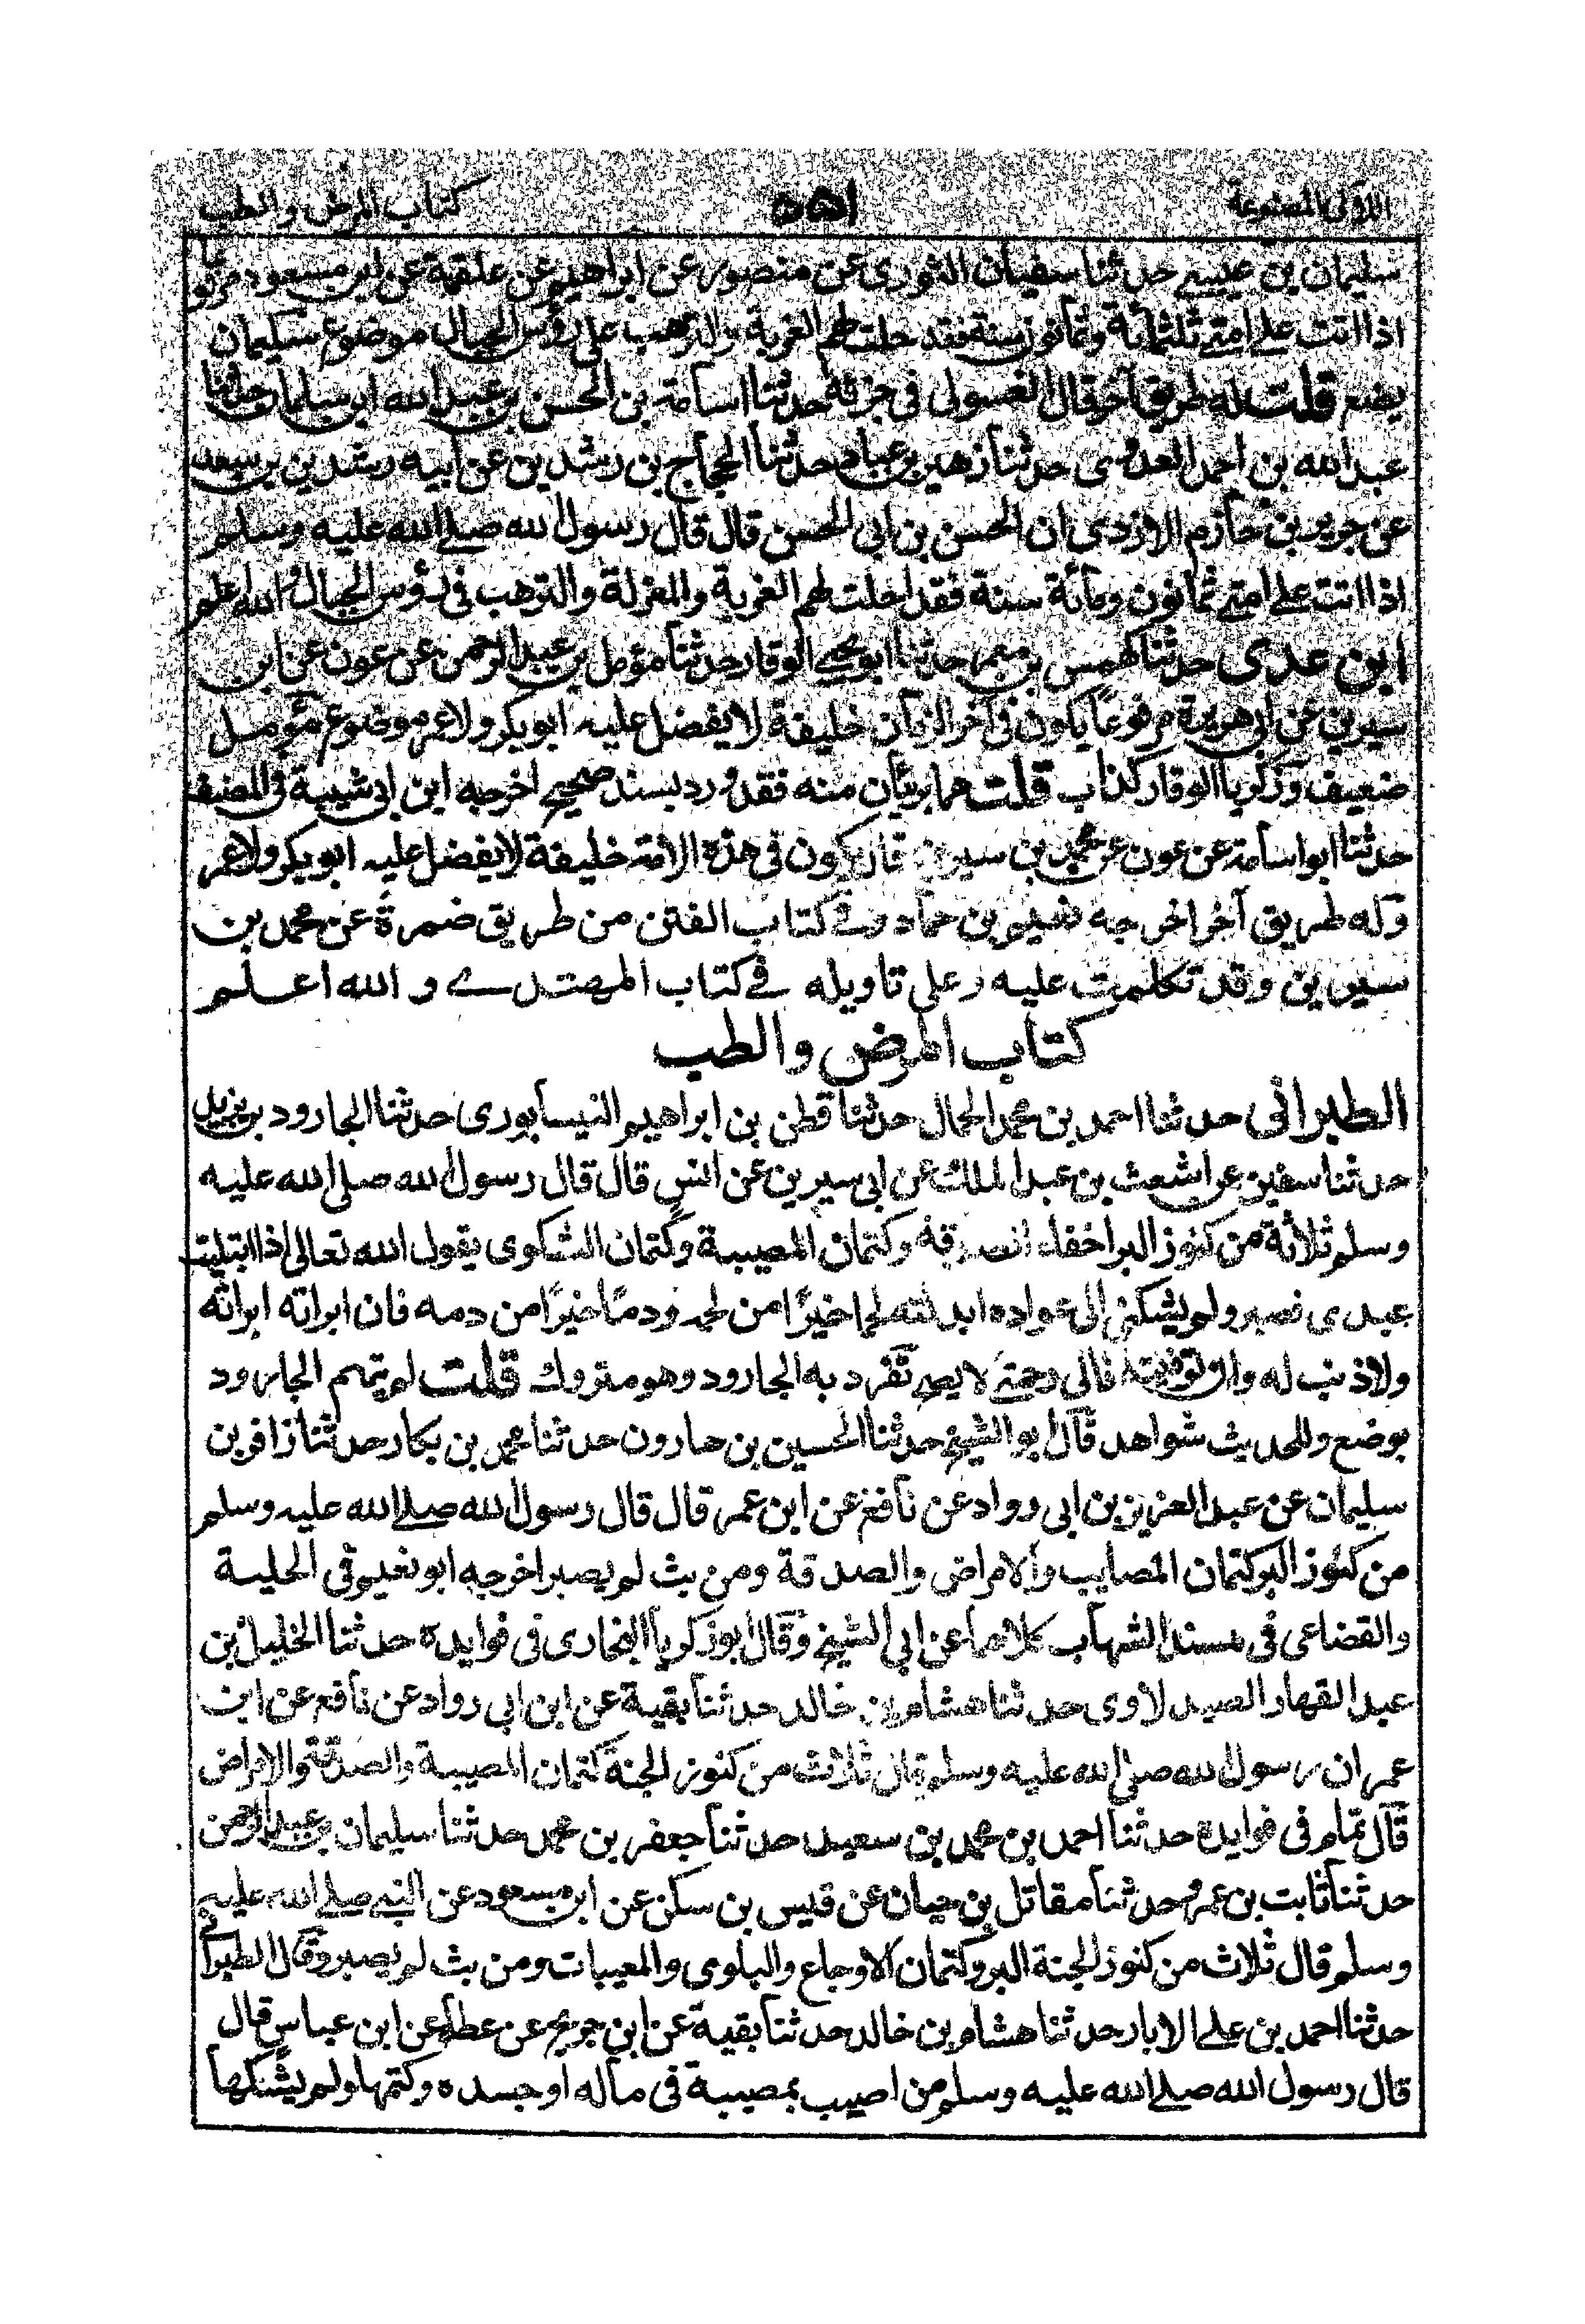 اللآلى المصنوعة ٥٥١ كتاب المرض والطب
سليمان بن عيسى حدثنا سفيان الثورى عن منصور عن ابراهيم عن علقمة عن ابن مسعود مرفوعا
اذا اتت على امتى ثلثمائة وثمانون سنة فقد حلت لهم الغربة والترهب على رؤس الجبال موضوع سليمان
يضع قلت له طريق آخر قال الغسولى فى جزئه حدثنا اسامة بن الحسن بن عبد الله ابن سلمان حدثنا
عبد الله بن احمد العدوى حدثنا زهير بن عباد حدثنا الحجاج بن رشدين عن ابيه رشدين بن سعد
عن جرير بن حازم الازدى ان الحسن بن ابى الحسن قال قال رسول الله صلى الله عليه وسلم
اذا اتت على امتى ثمانون ومائة سنة فقد احلت لهم الغربة والعزلة والترهب فى رؤس الجبال والله اعلم
ابن عدى حدثنا كهمس بن معمر حدثنا ابو يحيى الوقار حدثنا مؤمل بن عبد الرحمن عن عون عن ابن
سيرين عن ابى هريرة مرفوعاً يكون فى آخر الزمان خليفة لا يفضل عليه ابو بكر ولا عمر موضوع مؤمل
ضعيف وزكريا الوقار كذاب قلت هما بريئان منه فقد ورد بسند صحيح اخرجه ابن ابى شيبة فى المصنف
حدثنا ابو اسامة عن عون عن محمد بن سيرين قال يكون فى هذه الامة خليفة لا يفضل عليه ابو بكر ولا عمر
وله طريق آخر اخرجه نعيم بن حماد فى كتاب الفتن من طريق ضمرة عن محمد بن
سيرين وقد تكلمت عليه وعلى تاويله فى كتاب المهتدى والله اعلم
كتاب المرض والطب
الطبرانى حدثنا احمد بن محمد الحمال حدثنا قطن بن ابراهيم النيسابورى حدثنا الجارود بن يزيد
حدثنا سفين عن اشعث بن عبد الملك عن ابى سيرين عن انس قال قال رسول الله صلى الله عليه
وسلم ثلاثة من كنوز البر اخفاء الصدقة وكتمان المصيبة وكتمان الشكوى يقول الله تعالى اذا ابتليت
عبدى فصبر ولم يشكنى الى عواده ابدلته لحما خيرًا من لحمه ودمًا خيرًا من دمه فان ابراته ابراته
ولا ذنب له وان توفيته فالى رحمتى لا يصح تفرد به الجارود وهو متروك قلت لم يتهم الجارود
بوضع وللحديث شواهد قال ابو الشيخ حدثنا الحسين بن هارون حدثنا محمد بن بكار حدثنا زافر بن
سليمان عن عبد العزيز بن ابى رواد عن نافع عن ابن عمر قال قال رسول الله صلى الله عليه وسلم
من كنوز البر كتمان المصايب والامراض والصدقة ومن بث لم يصبر اخرجه ابو نعيم فى الحلية
والقضاعى فى مسند الشهاب كلاهما عن ابى الشيخ وقال ابو زكريا البخارى فى فوايده حدثنا الخليل بن
عبد القهار الصيدلاوى حدثنا هشام بن خالد حدثنا بقية عن ابن ابى رواد عن نافع عن ابن
عمر ان رسول الله صلى الله عليه وسلم قال ثلاث من كنوز الجنة كتمان المصيبة والصدقة والامراض
قال تمام فى فوايده حدثنا احمد بن محمد بن سعيد حدثنا جعفر بن محمد حدثنا سليمان بن عبد الرحمن
حدثنا ثابت بن عمرو حدثنا مقاتل بن حيان عن قيس بن سكن عن ابن مسعود عن النبى صلى الله عليه
وسلم قال ثلاث من كنوز الجنة البر وكتمان الاوجاع والبلوى والمعيبات ومن بث لم يصبر وقال الطبرانى
حدثنا احمد بن على الابار حدثنا هشام بن خالد حدثنا بقية عن ابن جريج عن عطاء عن ابن عباس قال
قال رسول الله صلى الله عليه وسلم من اصيب بمصيبة فى ماله او جسده وكتمها ولم يشكها